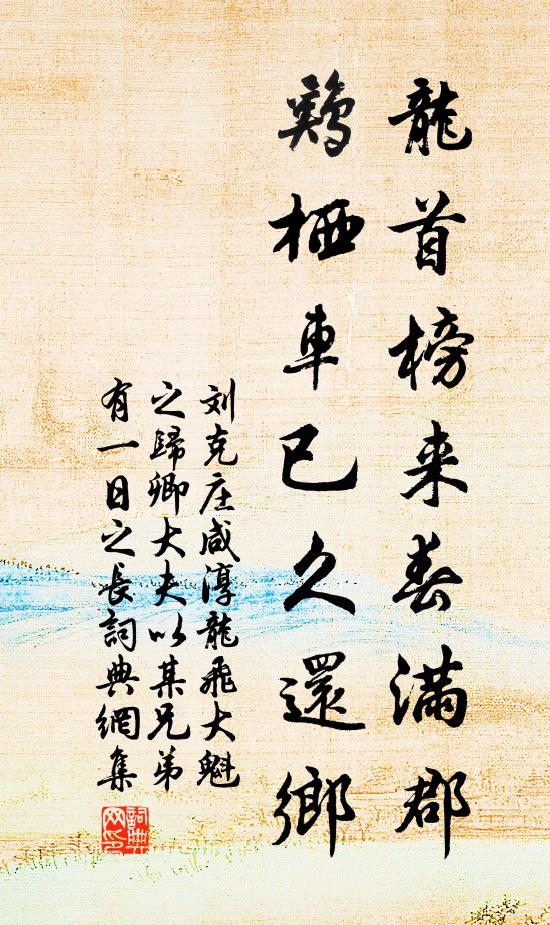 龍首榜来春滿郡
鷄栖車已久還鄉
刘克庄咸淳龍飛大魁
之歸卿大夫以某兄弟
有一日之長詞典網集
詞典网印